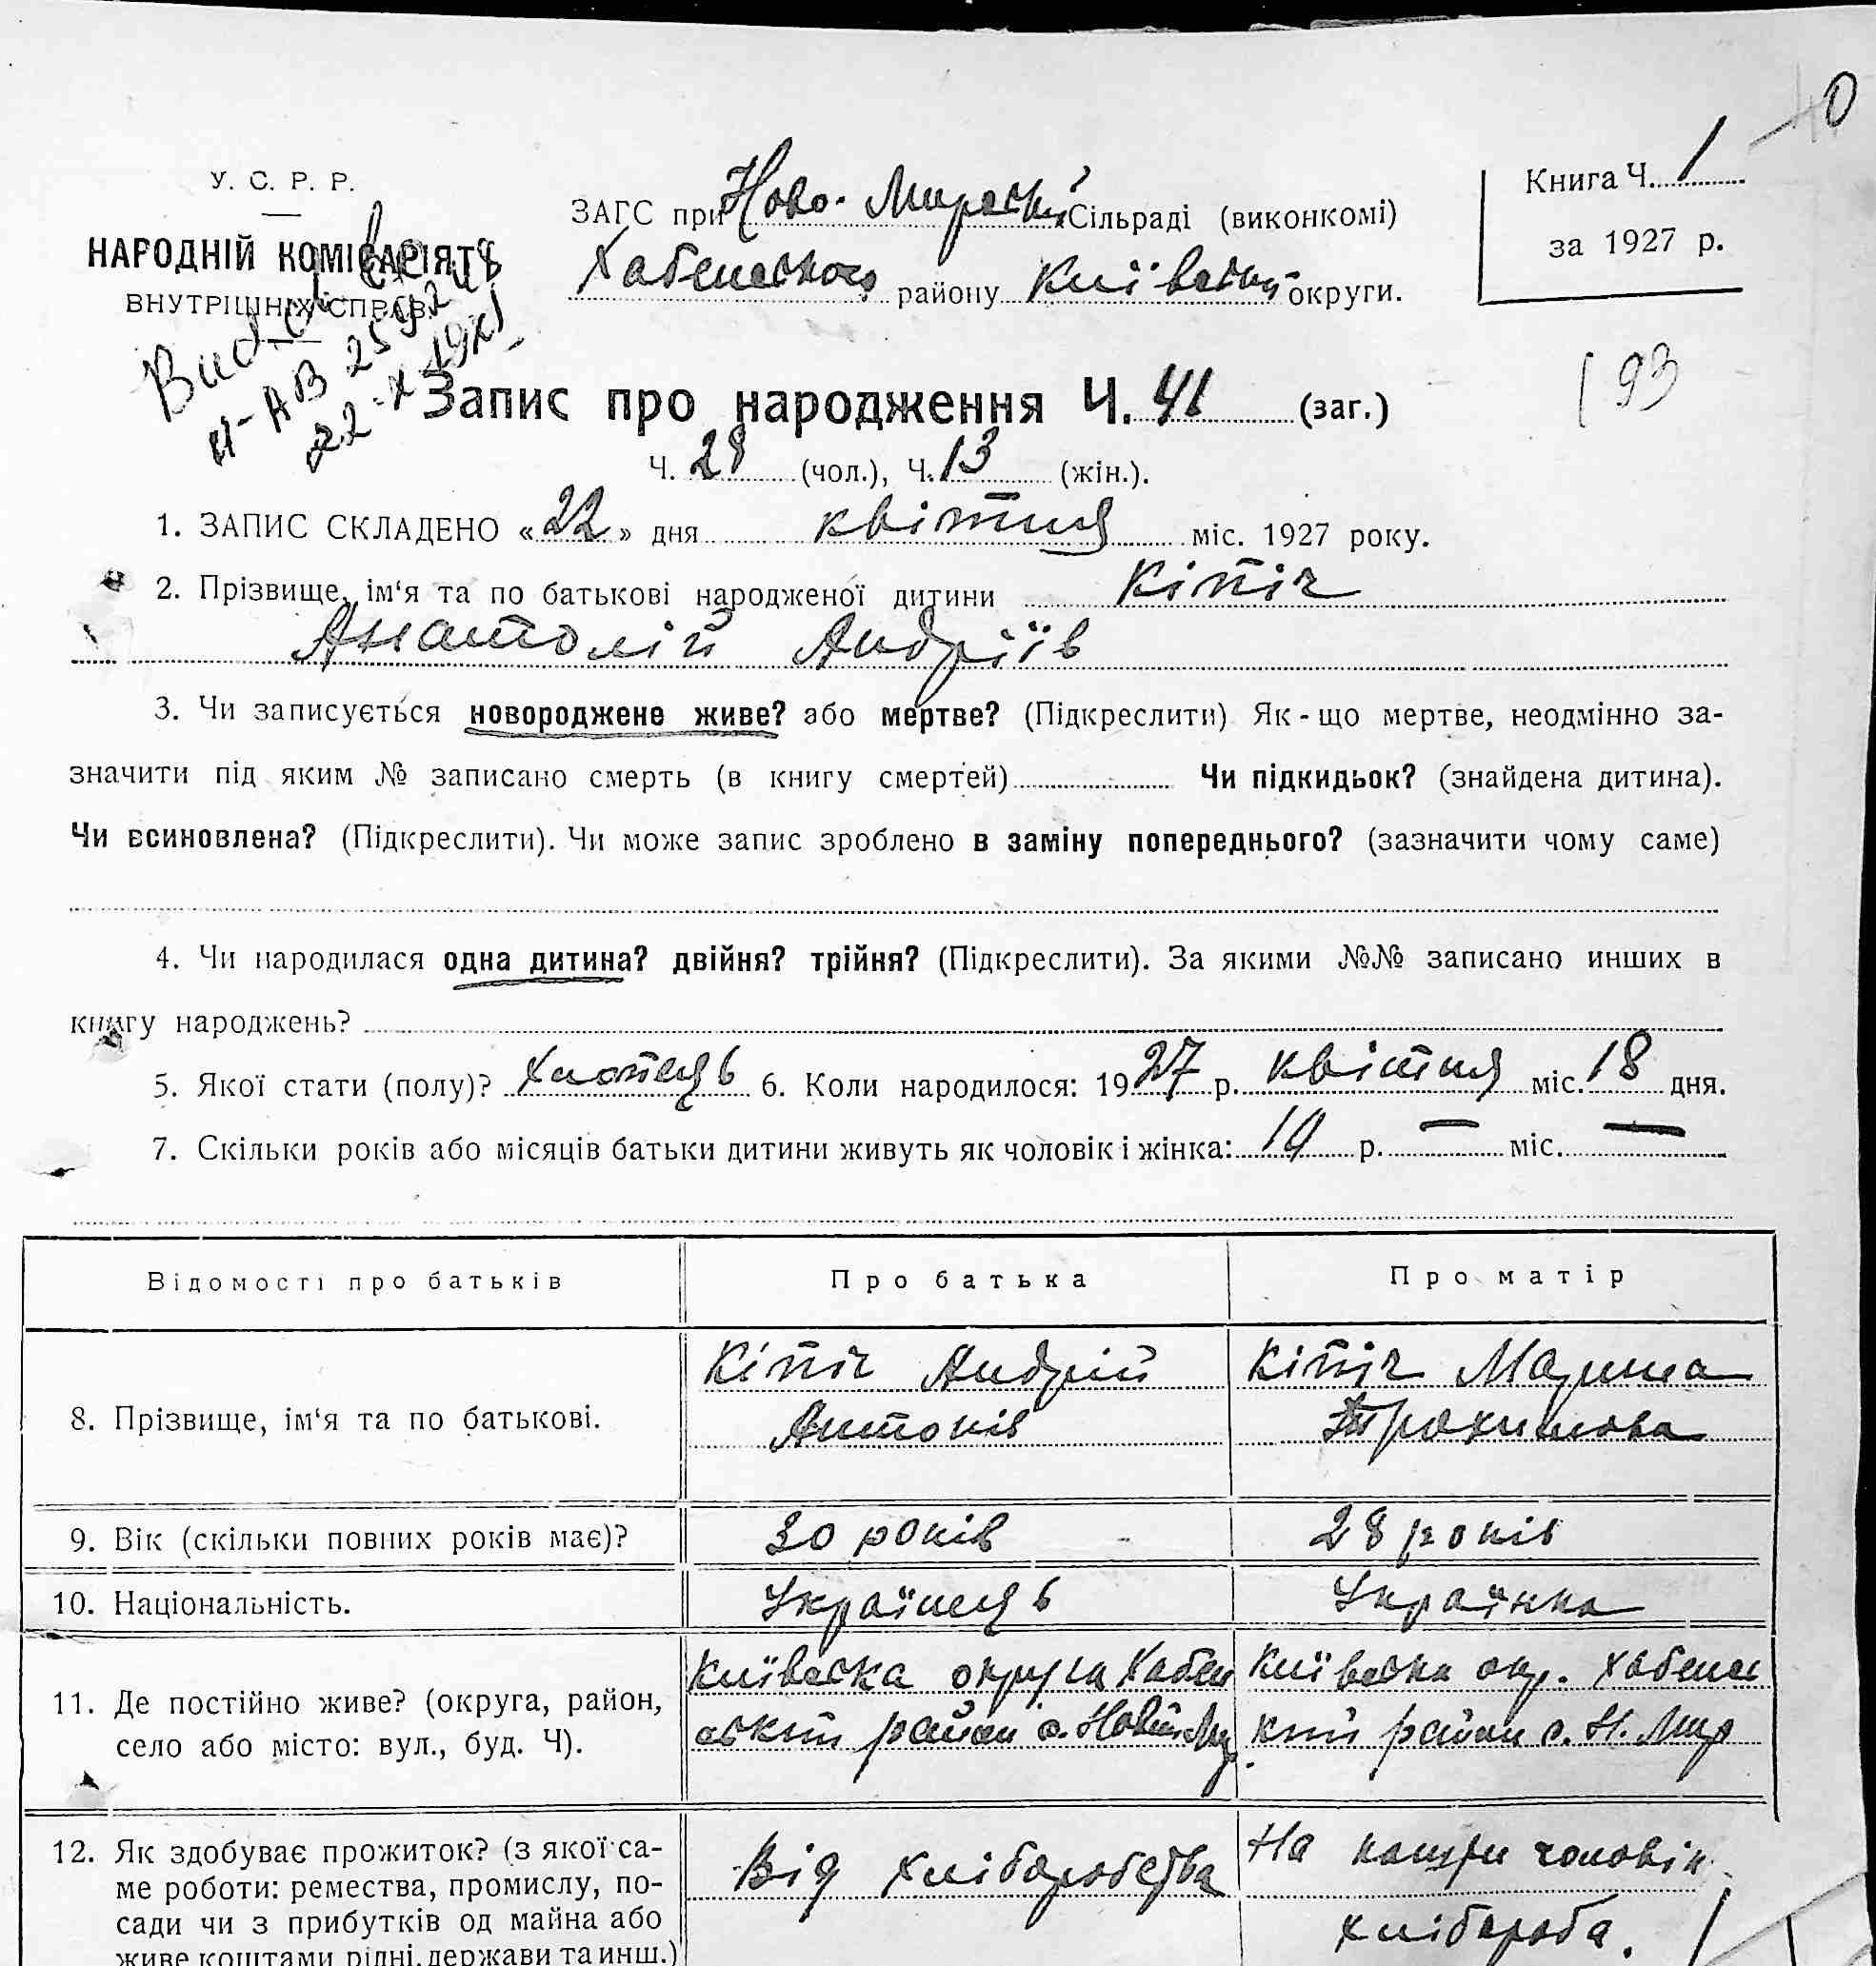 О
У. С. Р. Р.
НАРОДНІЙ КОМІСАРІЯТ
ВНУТРІШНІХ СПРАВ
ЗАГС при Ново-Мирській Сільраді (виконкомі)
Хабенського району Київської округи.
Книга Ч. 1
за 1927 р.
193
22-X
Запис про народження Ч. 41 (заг.)
Ч. 28 (чол.), Ч. 13 (жін.).
1. ЗАПИС СКЛАДЕНО «22» дня квітня міс. 1927 року.
2. Прізвище, ім‘я та по батькові народженої дитини Кіпіч
Анатолій Андріїв
3. Чи записується новороджене живе? або мертве? (Підкреслити) Як-що мертве, неодмінно за-
значити під яким № записано смерть (в книгу смертей) Чи підкидьок? (знайдена дитина).
Чи всиновлена? (Підкреслити). Чи може запис зроблено в заміну попереднього? (зазначити чому саме)
4. Чи народилася одна дитина? двійня? трійня? (Підкреслити). За якими №№ записано инших в
книгу народжень?
5. Якої стати (полу)? Хлопець 6. Коли народилося: 1927 р. квітня міс. 18 дня.
7. Скільки років або місяців батьки дитини живуть як чоловік і жінка: 10 р. — міс. —
Відомості про батьків Про батька Про матір
8. Прізвище, ім‘я та по батькові.
Кіпіч Андрій
Антонів
Кіпіч Марина
Трохимова
9. Вік (скільки повних років має)? 30 років 28 років
10. Національність. Українець Українка
11. Де постійно живе? (округа, район,
село або місто: вул., буд. Ч).
Київська округа Хабен
ський район с. Новий Мир
Київська окр. Хабенс
кий район с. Н. Мир
12. Як здобуває прожиток? (з якої са-
ме роботи: ремества, промислу, по-
сади чи з прибутків од майна або
живе коштами рідні, держави та инш.)
Від хліборобства
На кошти чоловік
хлібороба.